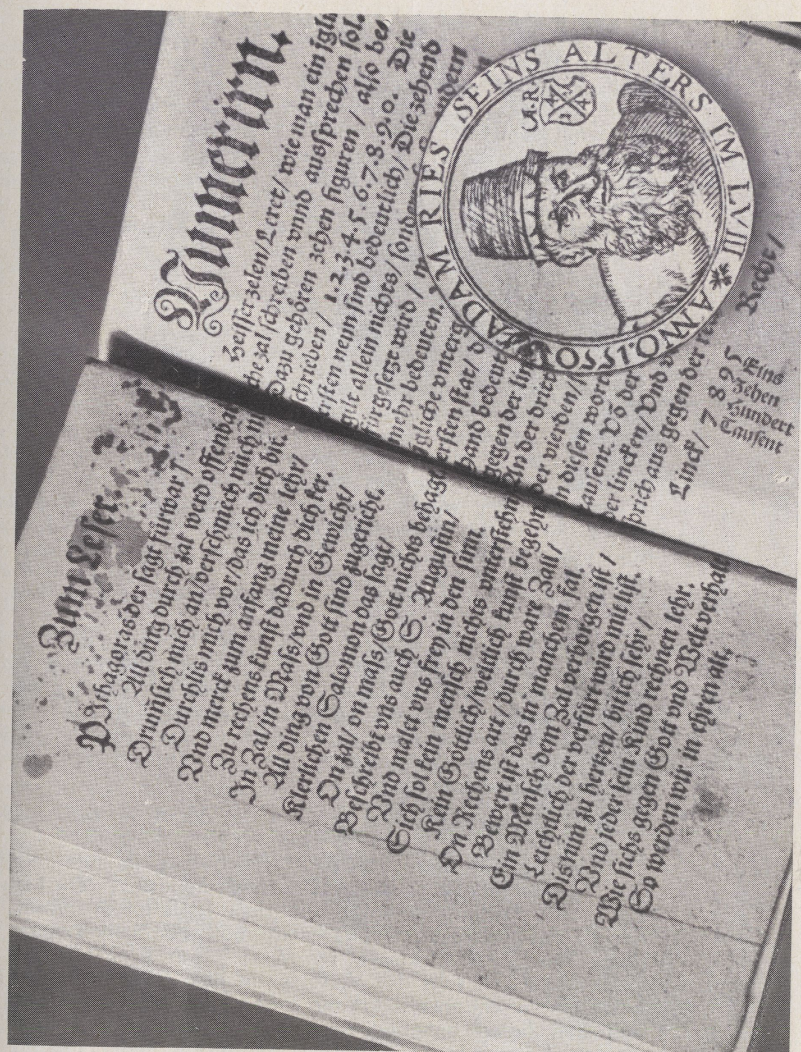 Zum Leser.
Pythagoras der sagt fürwar /
All ding durch zal werd offenbar
Drumb sich mich an / verschmech mich nicht
Durchlis mich vor / das ich dich bit.
Vnd merck zum anfang meine lehr /
Zu rechens kunst dadurch dich ker.
In Zal / in Mass / vnd in Gewicht /
All ding von Gott sind zugericht.
Klerlichen Salomon das sagt /
On zal / on mass / Gott nichts behagt
Beschreibt vns auch S. Augustin /
Vnd malet vns frey in den sinn.
Sich sol kein mensch nichts vntersthen
Kein Göttlich / weltlich kunst begehn
On Rechens art / durch ware Zall /
Bewert ist das in manchem fal.
Ein Mensch dem Zal verborgen ist /
Leichtlich der verfürt wird mit list.
Dis nim zu hertzen / bitt ich sehr /
Vnd jeder sein Kind rechnen lehr.
Wie sichs gegen Gott vnd Welt verhalt
So werden wir in ehren alt.
Numerirn.
Heisset zelen / Leret / wie man ein igli
che zal schreiben vnnd aussprechen sol.
Dazu gehören zehen figuren / also be
schrieben / 1. 2. 3. 4. 5. 6. 7. 8. 9. 0. Die
ersten neun sind bedeutlich / Die zehend
gilt allein nichts /
fürgesetzt wird /
mehr bedeuten.
ersten stat /
Hand bedeut
gegen der
An der
der vierden /
n disen wort
tausent.
der lincken / Vnd
sprich aus gegen der
Linck / 7 8 9 5 Recht /
Eins
Zehen
Hundert
Tausent
ANNO 1550 ADAM RIES SEINS ALTERS IM LVIII